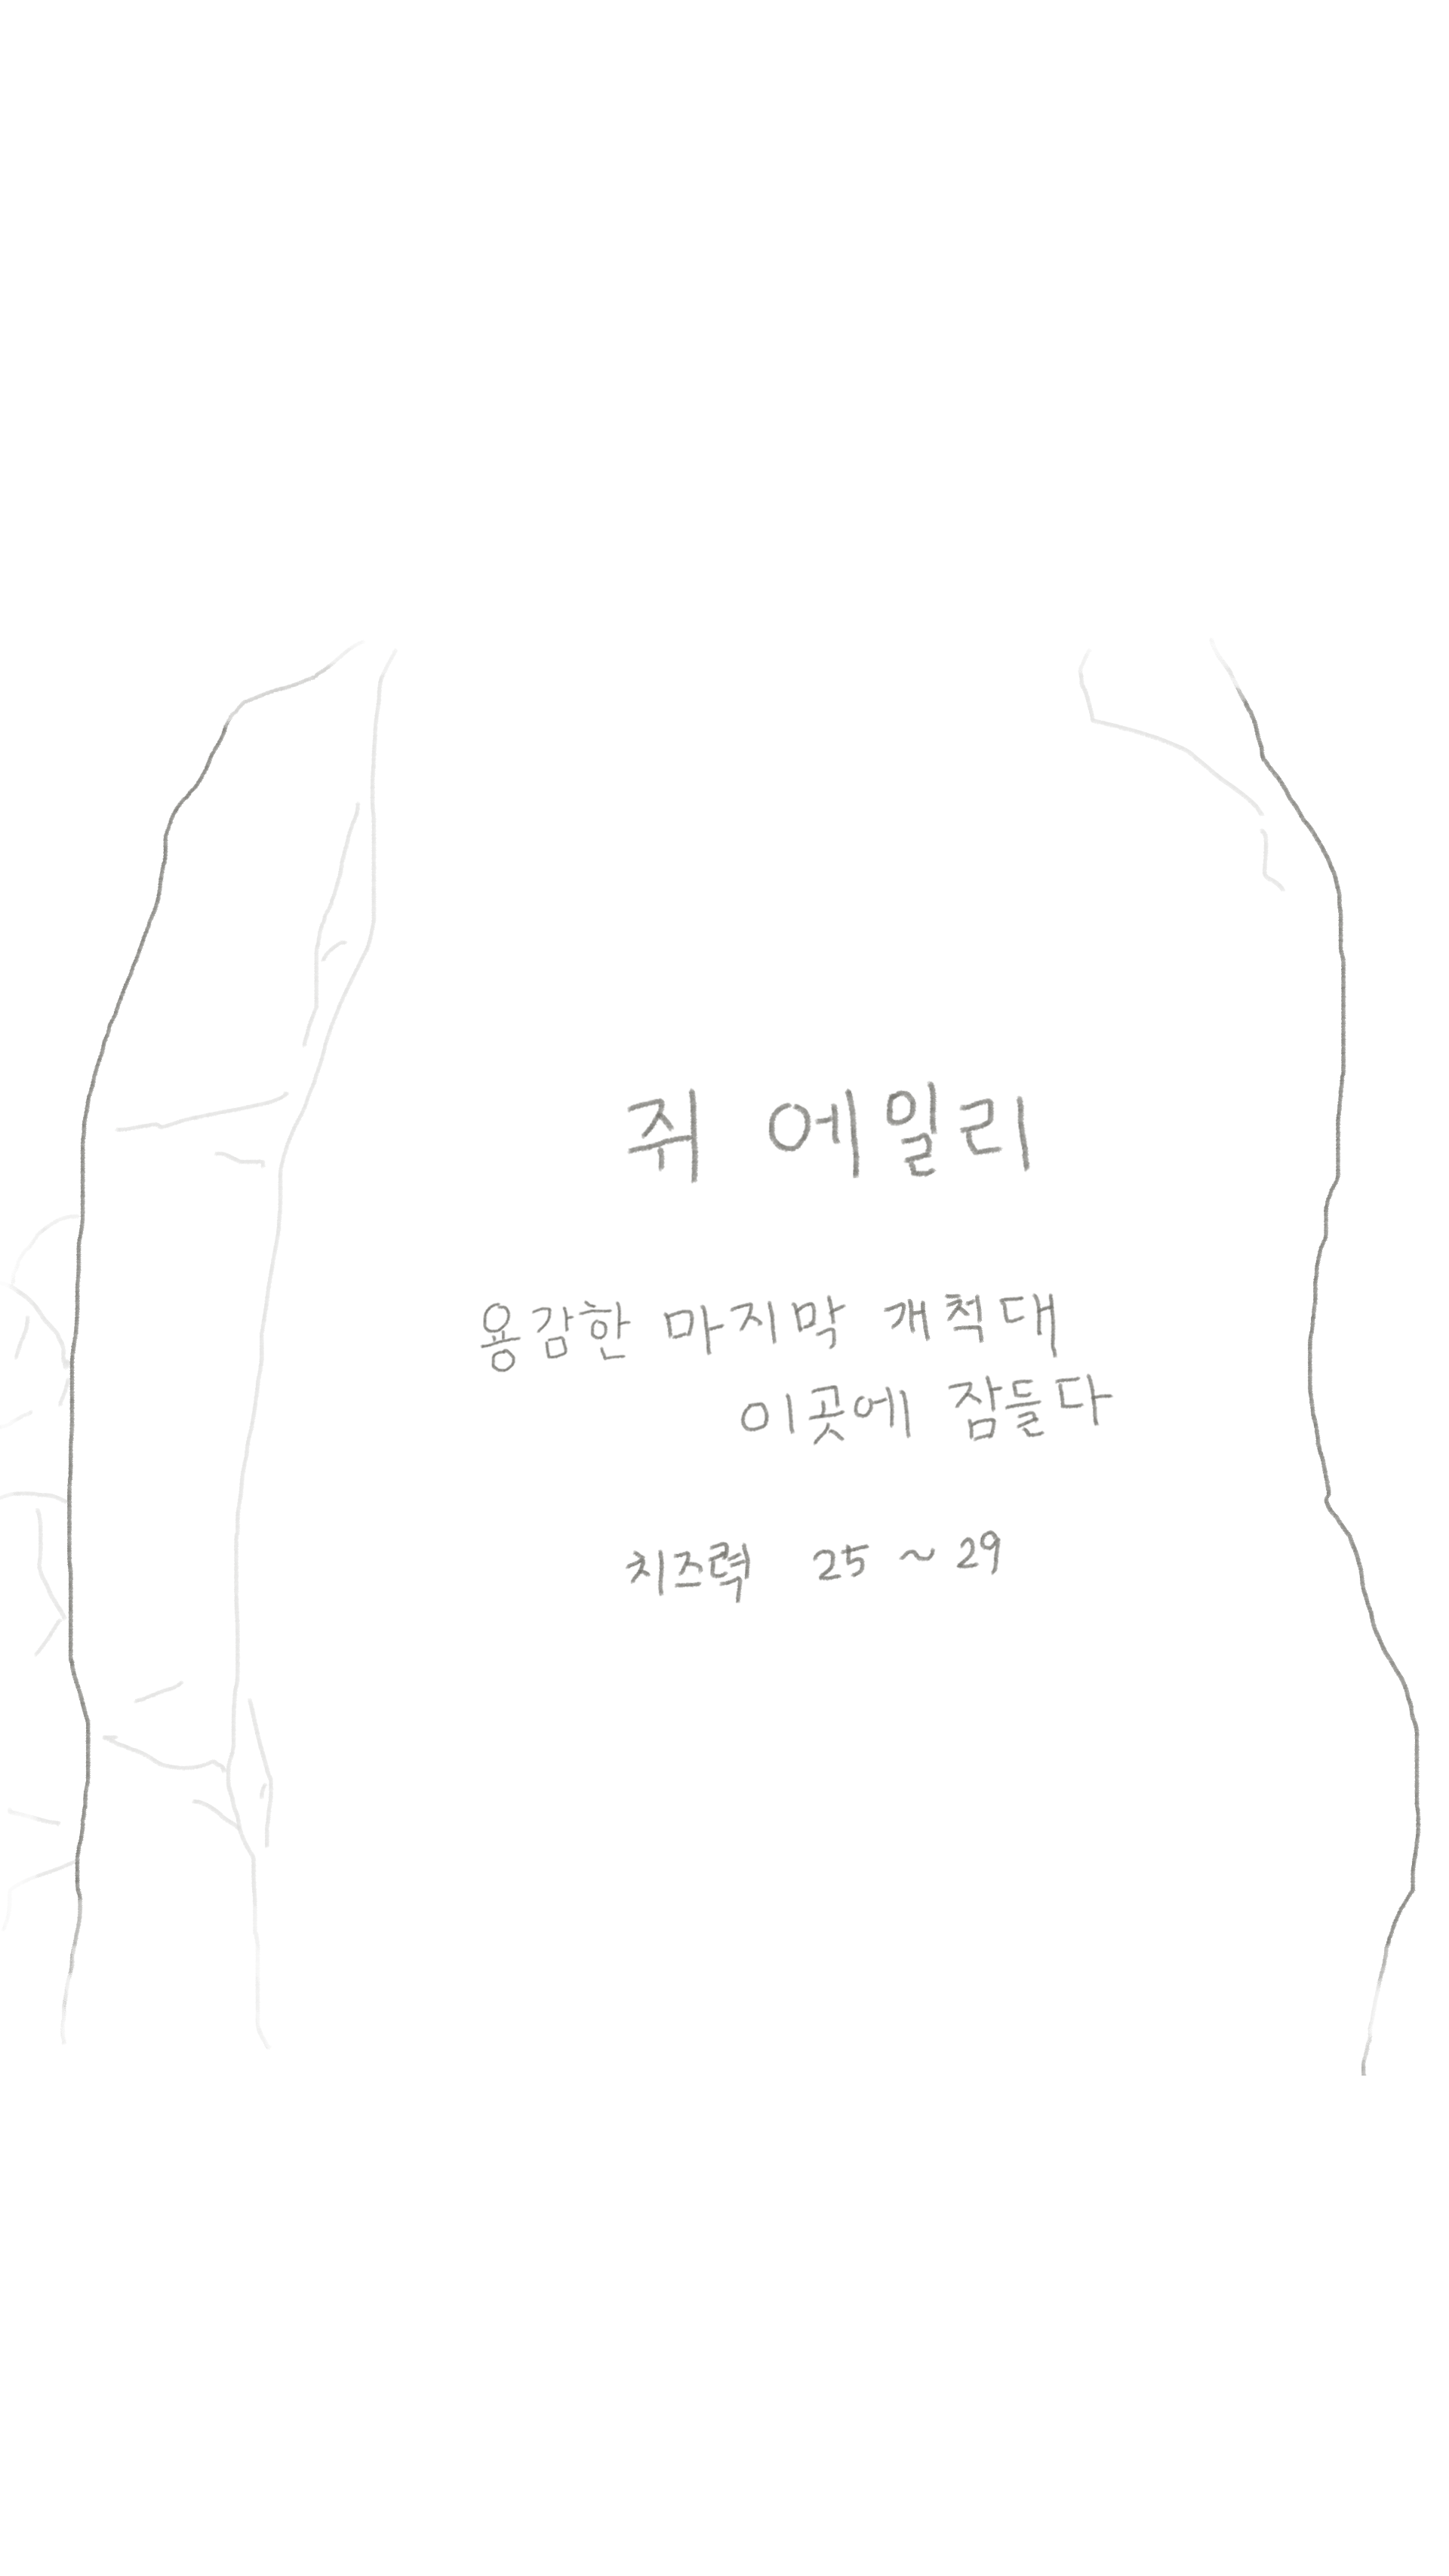 쥐 에일리
용감한 마지막 개척대
이곳에 잠들다
치즈력 25 ~ 29